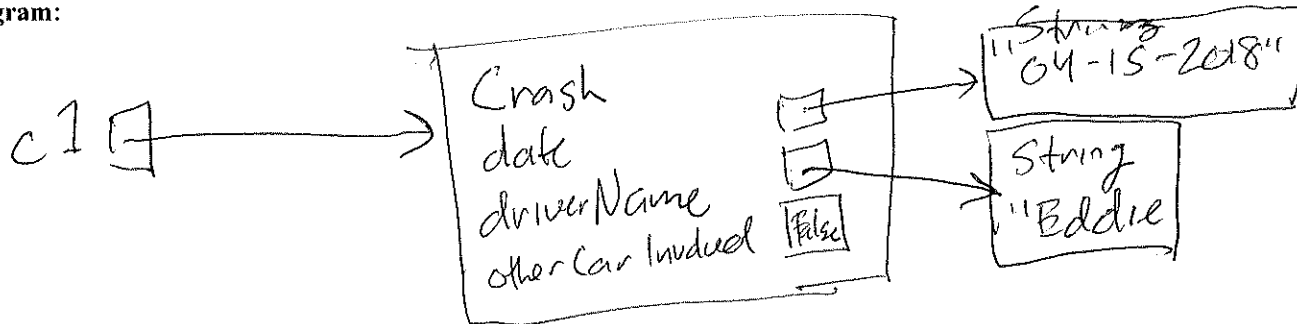 gram:
c1
Crash
date
driverName
otherCarInvolved False
String
"04-15-2018"
String
"Eddie